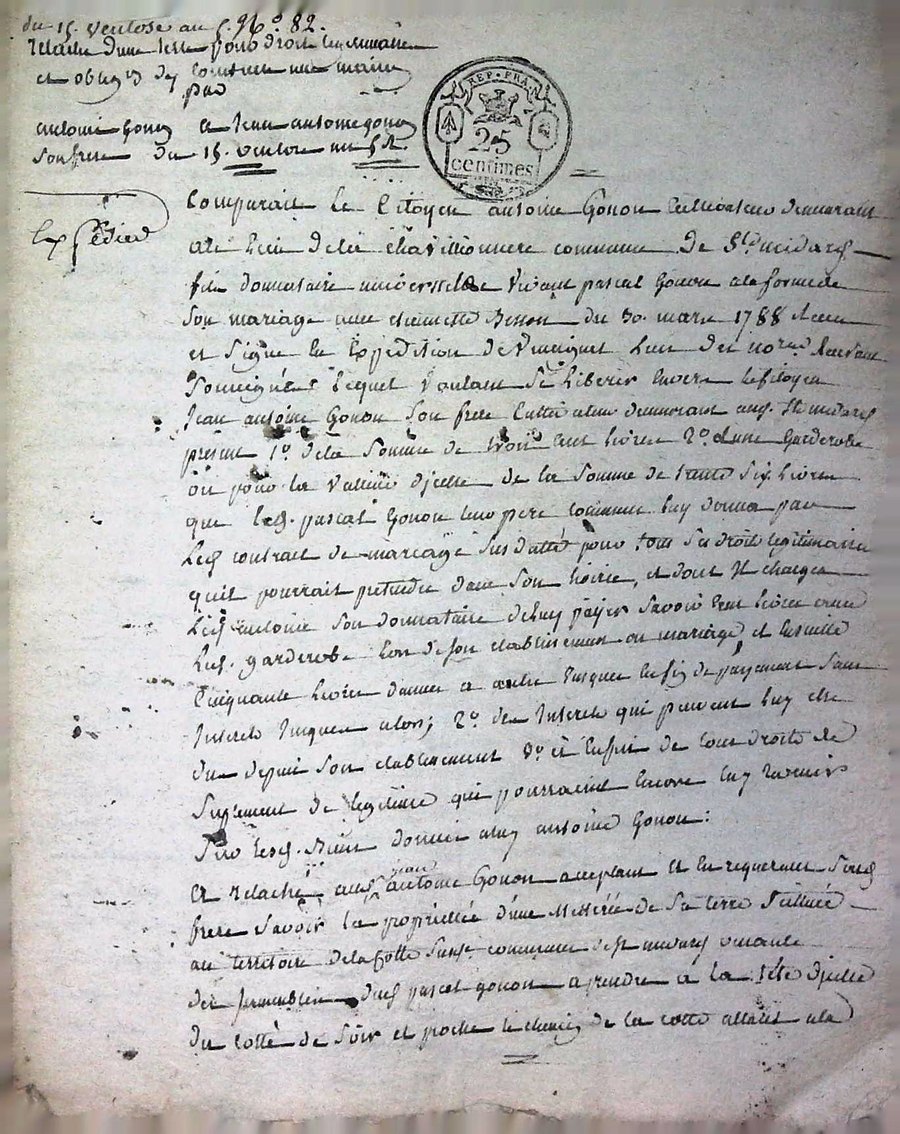 du 15. ventose an 5. N.o 82.
relache d'une terre pour droit legitimaire
et
par
antoine Gonon a Jean antoine gonon
son frere du 15. ventose an 5e
REP. FRA.
25
centimes
Expédié
Comparait le Citoyen antoine Gonon cultivateur demeurant
au lieu de la chavillionnere commune de St. medard
fils donnataire universel de vivant pascal Gonon a la forme de
son mariage avec Besson du 30. mars 1788 Receu
et signé en Expédition de Vincignet L'un des no.res Recevant
soussignés lequel voulant se liberer envers le citoyen
Jean antoine Gonon son frere cultivateur demeurant aud. St medard
présent 1.o de la somme de trois cent livres 2.o d'une garderobe
ou pour la valleur d'jcelle de la somme de trente six livres
que led. pascal Gonon leur pere commun luy donna par
led contrat de mariage susdatté pour tous ses droits legitimaire
quil pourrait pretendre dans son hoirie, et dont Jl chargea
led antoine son donnataire de luy payer savoir cent livres avec
lad. garderobe lors de son etablissement ou mariage et ensuitte
Cinquante livres d'année a autre jusques en fin de payement sans
Interets jusques alors; 2.o des Interets qui peuvent luy etre
du depuis son etablissement 3.o et enfin de tous droits de
suplement de legitime qui pourraient encore luy revenir
sur lesd. Biens donnés a luy antoine Gonon:
A relaché aud. jean antoine Gonon acceptant et en requerant sond
frere savoir la propriettée d'une Metterée de sa terre scituée
au territoire de la Cotte susd. commune de St medard venante
des jmmeubles dud pascal gonon a prendre a la tête d'jcelle
du cotté de soir et proche le chemin de la cotte allant a la